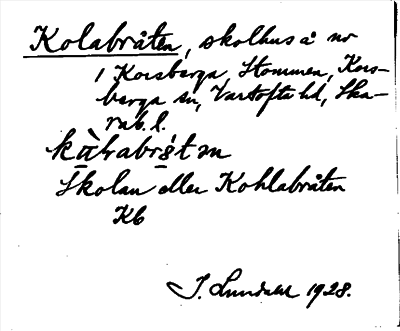 Kolabråten, skolhus å nr
1 Korsberga, Stommen, Kors-
berga sn, Vartofta hd, Ska-
rab. l.
Skolan eller Kohlabråten
Kb
J. Lundahl 1928.